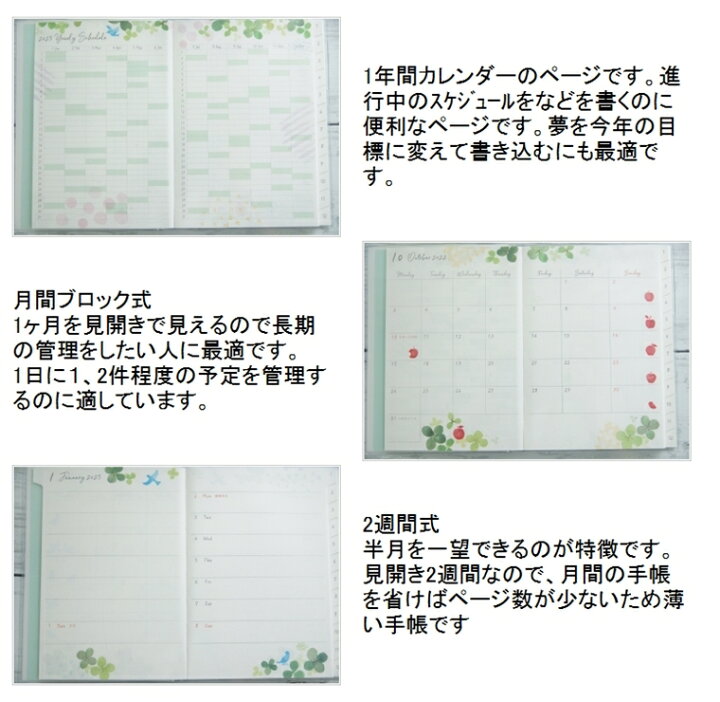 2023 Yearly Schedule
1年間カレンダーのページです。進
行中のｽｹｼﾞｭｰﾙをなどを書くのに
便利なページです。夢を今年の目
標に変えて書き込むにも最適で
す。
10 October 2022
Monday Tuesday Wednesday Thursday Friday Saturday Sunday
月間ブロック式
1ヶ月を見開きで見えるので長期
の管理をしたい人に最適です。
1日に1、2件程度の予定を管理す
るのに適しています。
1 January 2023
2 Mon
3 Tue
4 Wed
5 Thu
6 Fri
7 Sat
1 Sun
8 Sun
2週間式
半月を一望できるのが特徴です。
見開き2週間なので、月間の手帳
を省けばページ数が少ないため薄
い手帳です